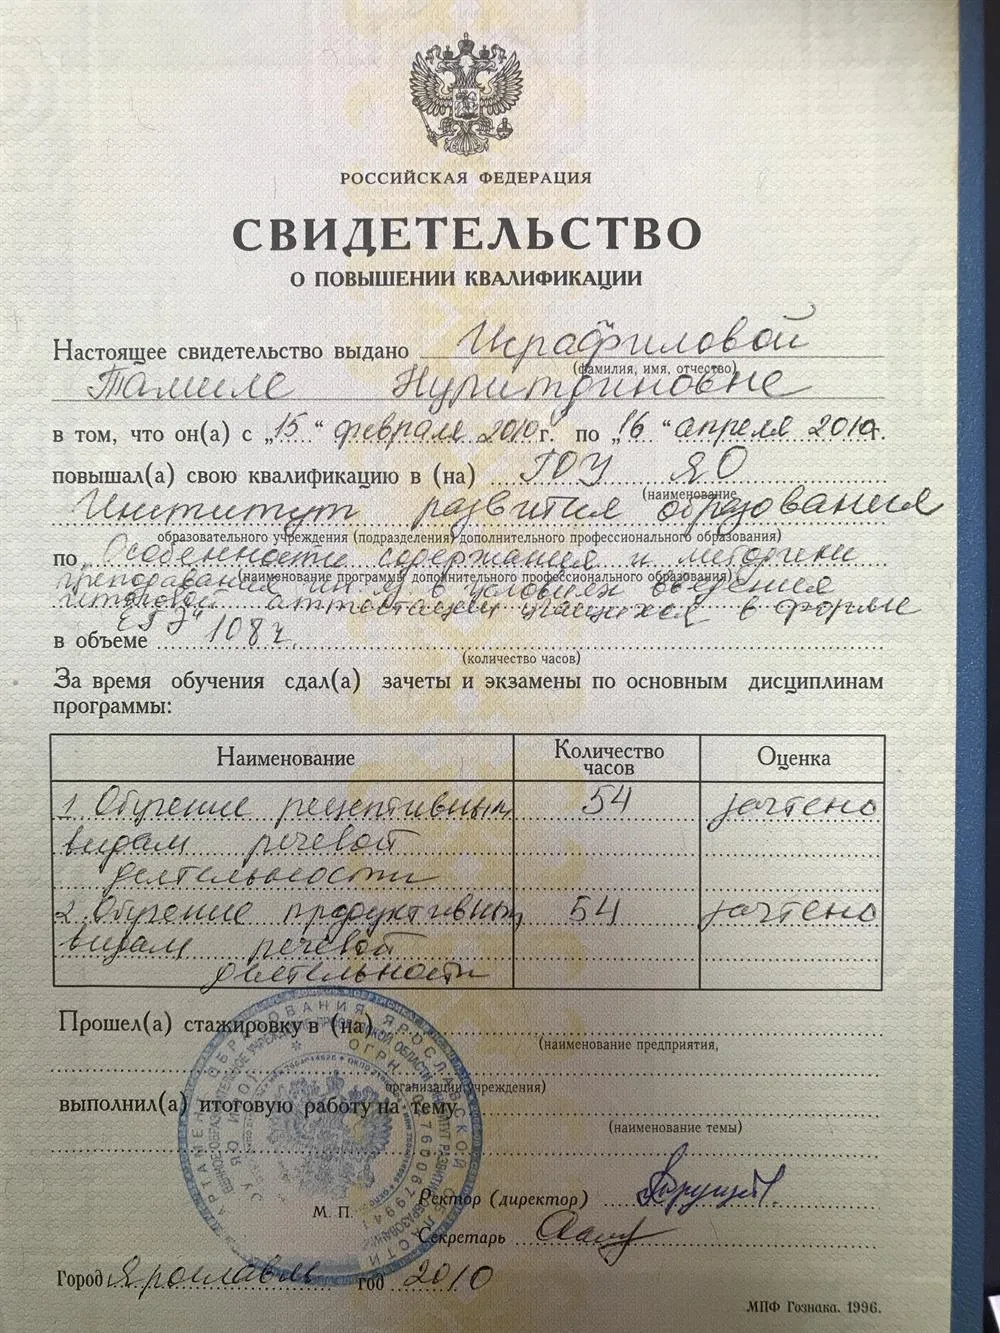 РОССИЙСКАЯ ФЕДЕРАЦИЯ
СВИДЕТЕЛЬСТВО
О ПОВЫШЕНИИ КВАЛИФИКАЦИИ
Настоящее свидетельство выдано Исрафиловой
(фамилия, имя, отчество)
Тамиле Нуритдиновне
в том, что он(а) с „15“ февраля 2010 г. по „16“ апреля 2010 г.
повышал(а) свою квалификацию в (на) ГОУ ЯО
(наименование
Институт развития образования
образовательного учреждения (подразделения) дополнительного профессионального образования)
по Особенности содержания и методики
(наименование программы дополнительного профессионального образования)
преподавания ин. яз в условиях введения
итоговой аттестации учащихся в форме
ЕГЭ"
в объеме 108 ч.
(количество часов)
За время обучения сдал(а) зачеты и экзамены по основным дисциплинам
программы:
Наименование Количество часов Оценка
1. Обучение рецептивным 54 зачтено
видам речевой
деятельности
2. Обучение продуктивным 54 зачтено
видам речевой
деятельности
Прошел(а) стажировку в (на)
(наименование предприятия,
организации, учреждения)
выполнил(а) итоговую работу на тему
(наименование темы)
Ректор (директор)
М. П.
Секретарь
Город Ярославль год 2010
МПФ Гознака. 1996.
ОБРАЗОВАНИЯ ЯРОСЛАВСКОЙ ОБЛАСТИ